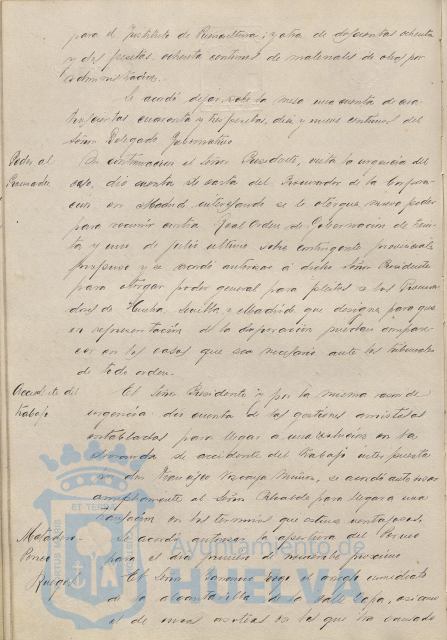 para el Instituto de Puericultura; y otra de doscientas ochenta
y dos pesetas ochenta centimos de materiales de obras por
administracion.
Se acordó dejar sobre la mesa una cuenta de
cuarenta y tres pesetas, diez y nueve centimos del
Señor Delegado Gubernativo
Poder al
Procurador
A continuacion el Señor Presidente, vista la urgencia del
caso, dió cuenta de carta del Procurador de la Corpora-
cion en Madrid interesando se le otorgue nuevo poder
para recurrir contra Real Orden de Gobernacion de trein-
ta y uno de julio ultimo sobre contingente provincial
y se acordó autorizar á dicho Señor Presidente
para otorgar poder general para pleitos a los Procura-
dores de Huelva, Sevilla y Madrid que designe para que
en representación de la Corporacion puedan compare-
cer en los casos que sea necesario ante los tribunales
de todo orden.
Accidente del
trabajo
El Señor Presidente y por la misma razon de
urgencia dió cuenta de las gestiones amistosas
entabladas para llegar a una solucion en la
demanda de accidente del trabajo interpuesta
por Don Francisco Vizcaya Muñoz, se acordó autorizar
ampliamente al Señor Alcalde para llegar a una
en los terminos que estime ventajosos.
Matadero
Se acordó autorizar la apertura del
para el dia primero de noviembre proximo
Ruegos
El Señor rogó el arreglo inmediato
de la alcantarilla de la calle
de las que ha causado
Ayuntamiento de
HUELVA